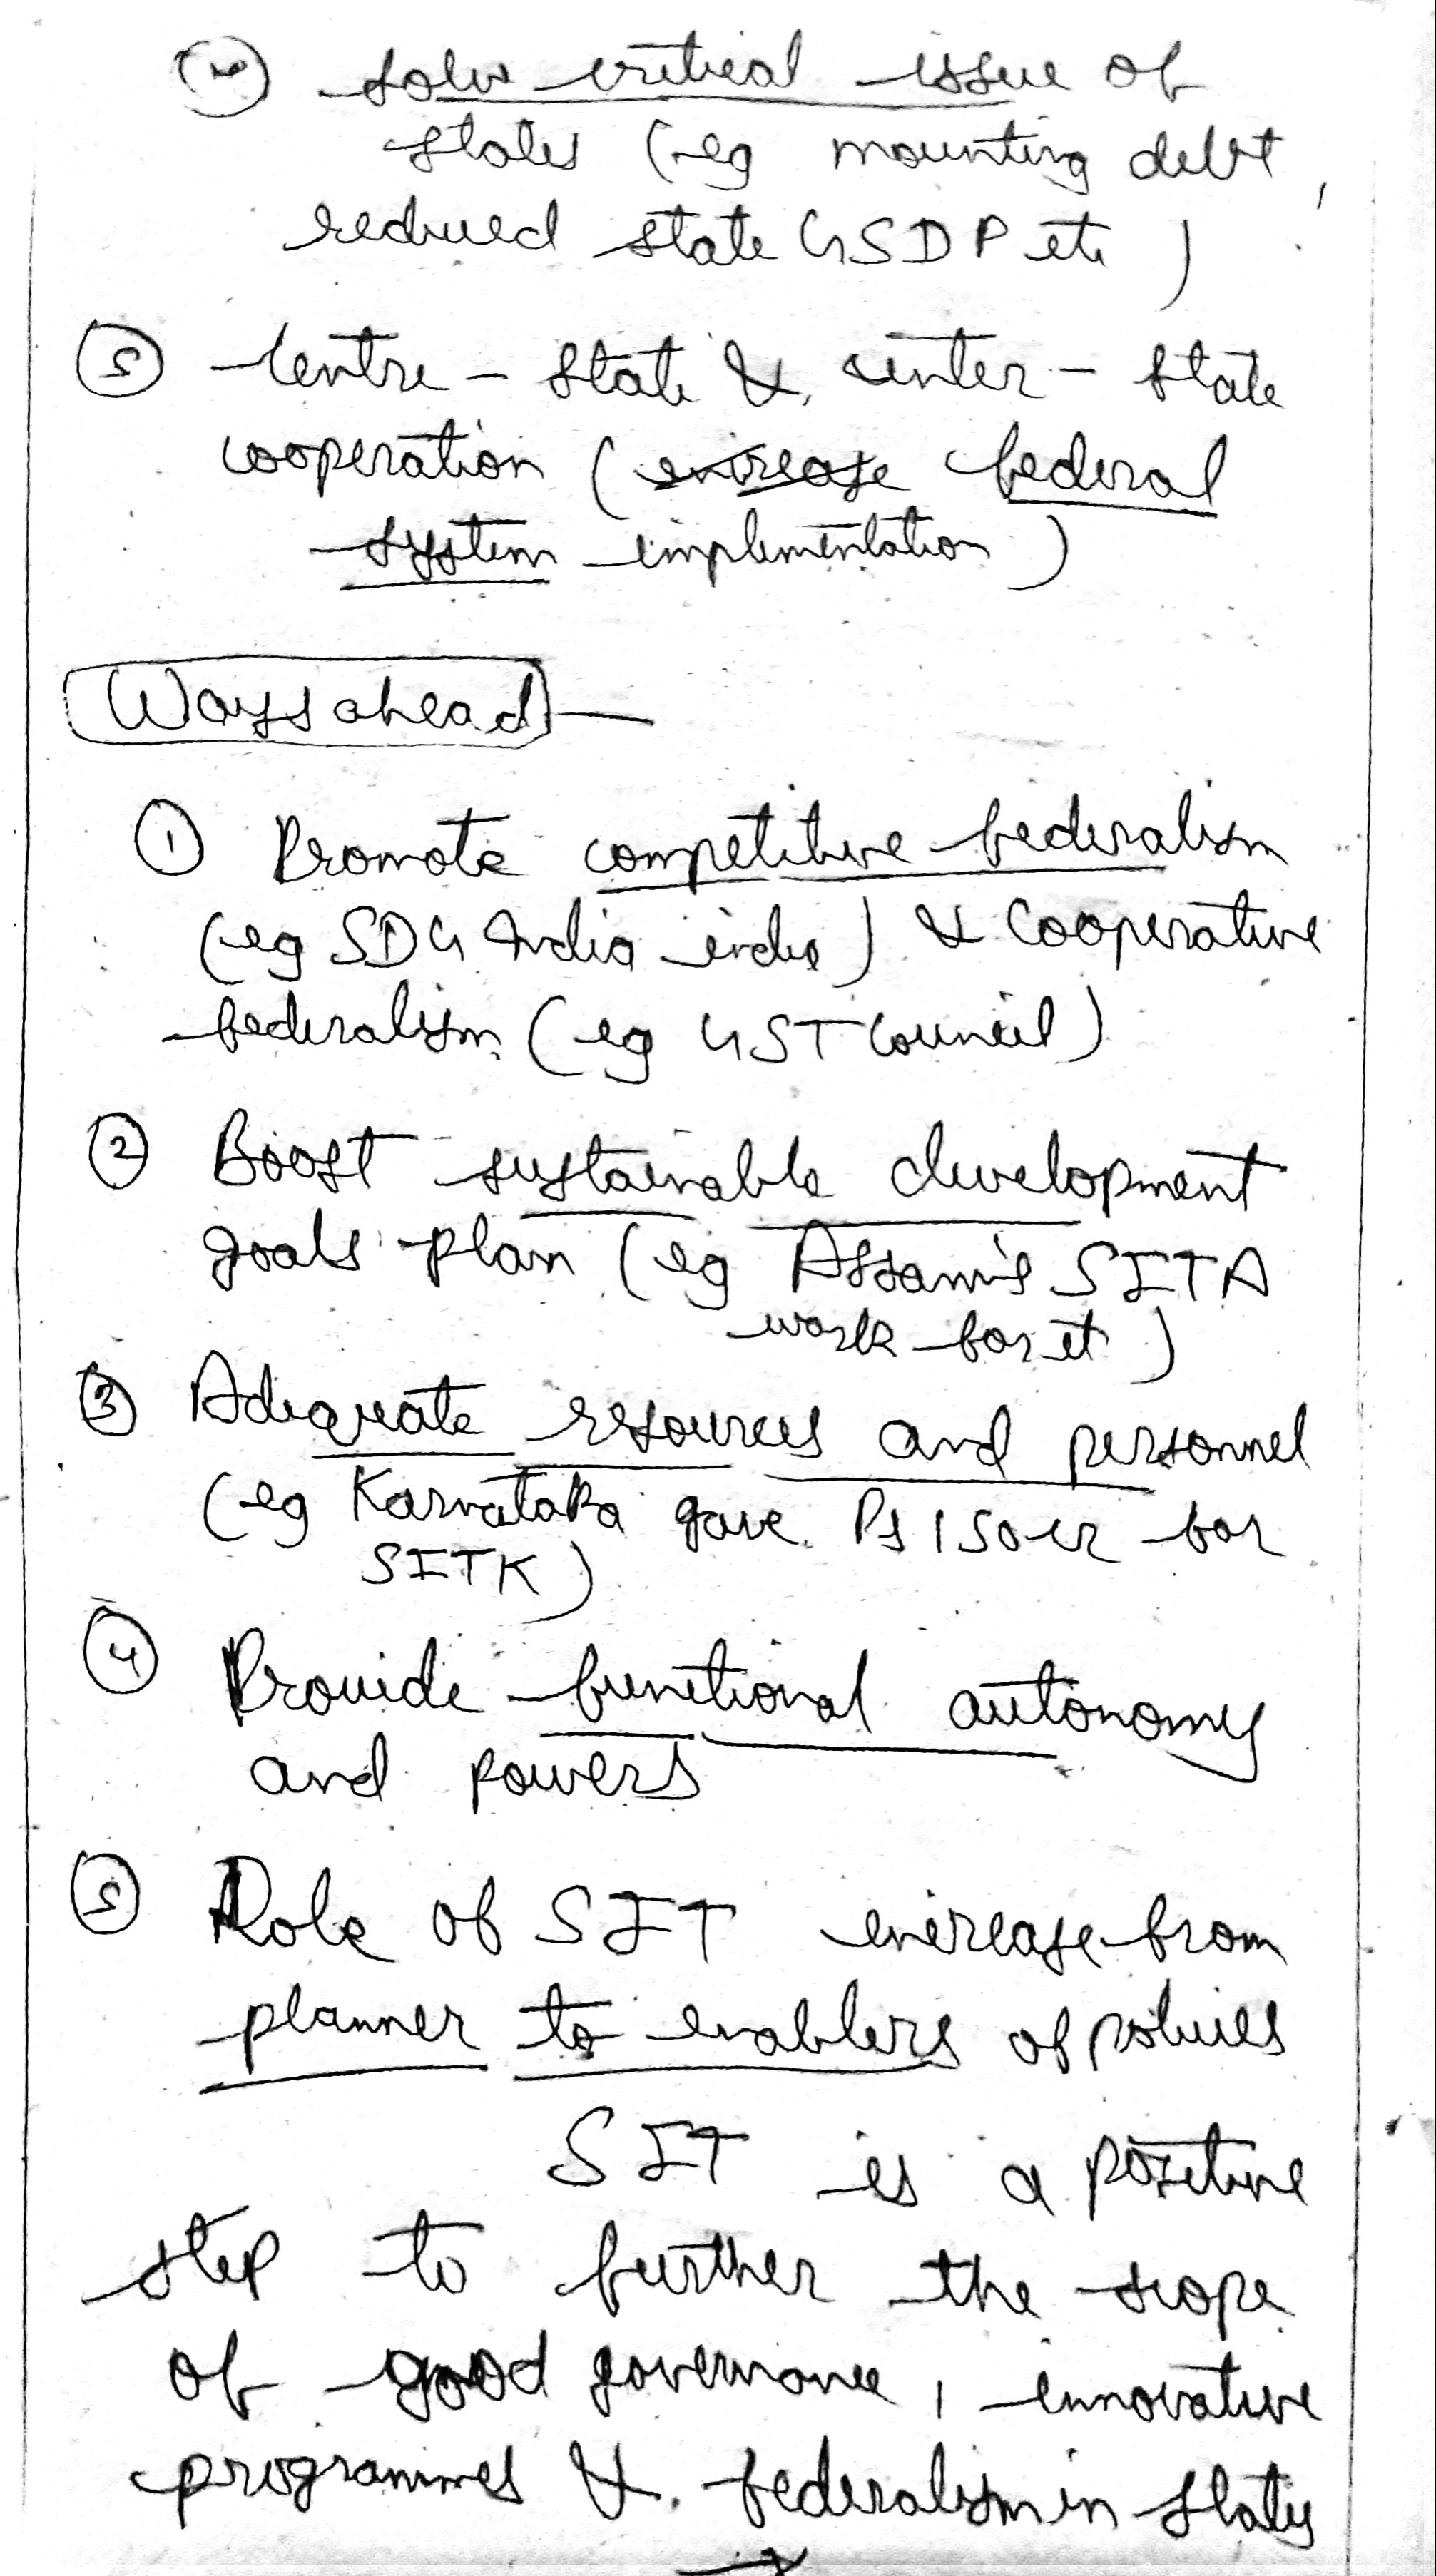 ④ solve critical issue of
states (eg mounting debt,
reduced state GSDP etc)
⑤ Centre - State & inter - state
cooperation (increase federal
system implementation)
Ways ahead —
① Promote competitive federalism
(eg SDG India index) & cooperative
federalism (eg GST Council)
② Boost sustainable development
goals plan (eg Assam's SITA
work for it)
③ Adequate resources and personnel
(eg Karnataka gave Rs 150 cr for
SITK)
④ Provide functional autonomy
and powers
⑤ Role of SIT increase from
planner to enablers of policies
SIT is a positive
step to further the scope
of good governance, innovative
programmes & federalism in states